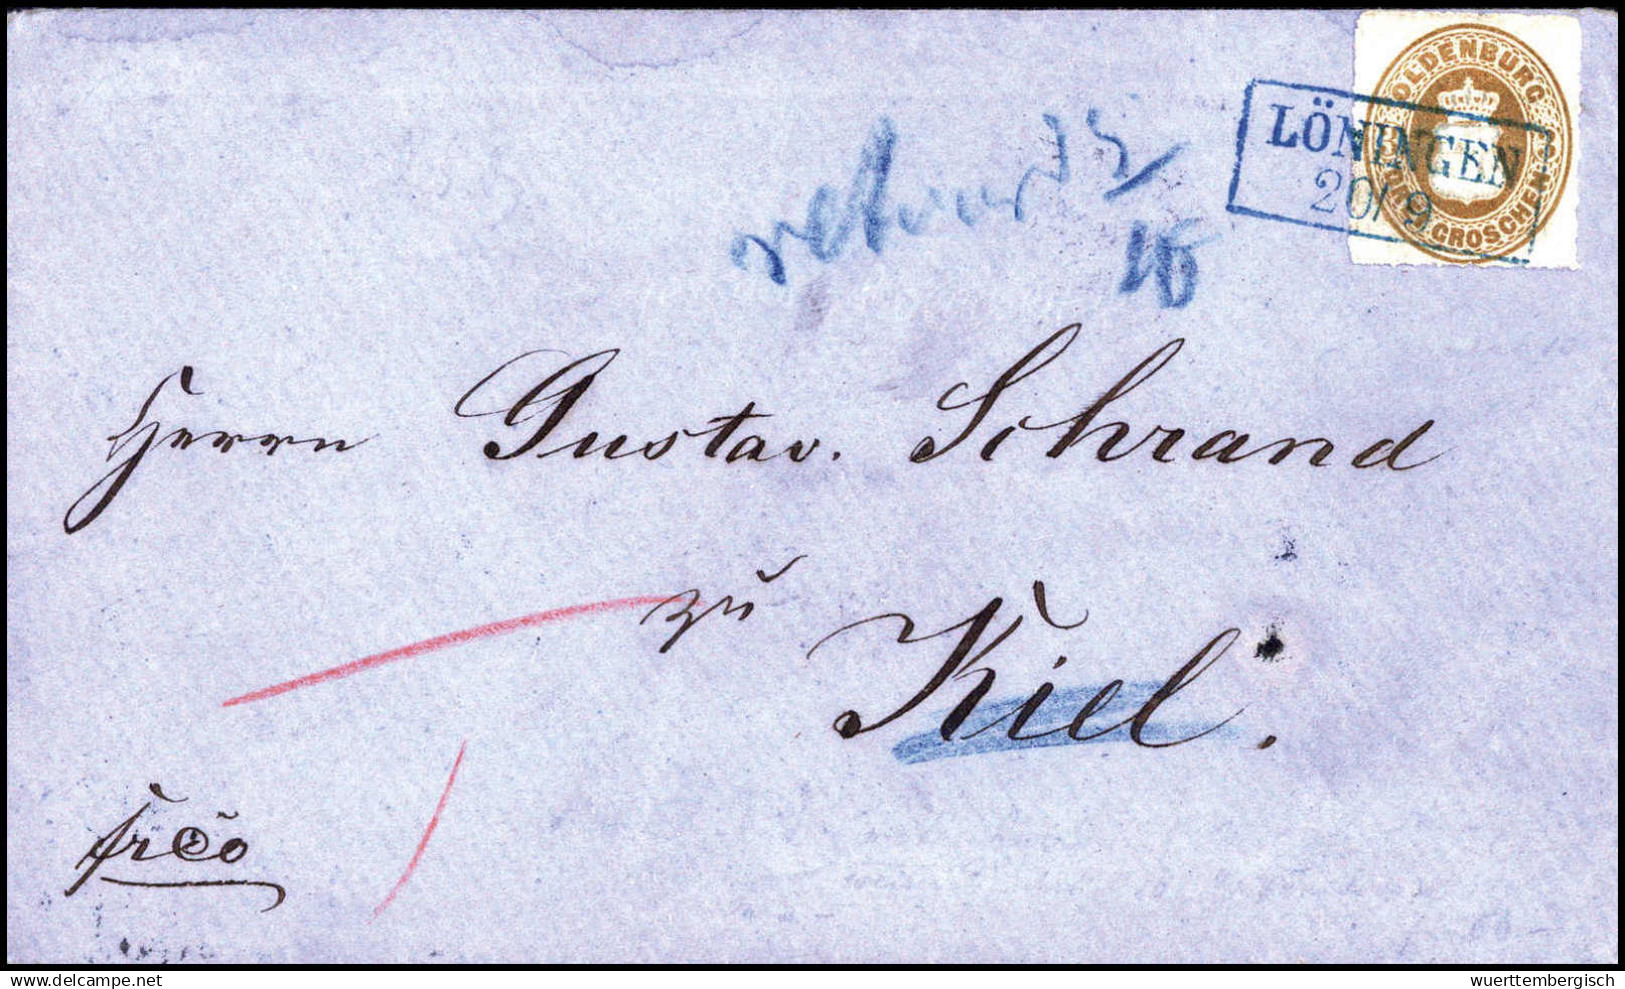 OLDENBURG
3 DREI GROSCHEN
LÖNINGEN
20/9
retour
Herrn Gustav. Schrand
zu
Kiel.
frco
delcampe.net
wuerttembergisch